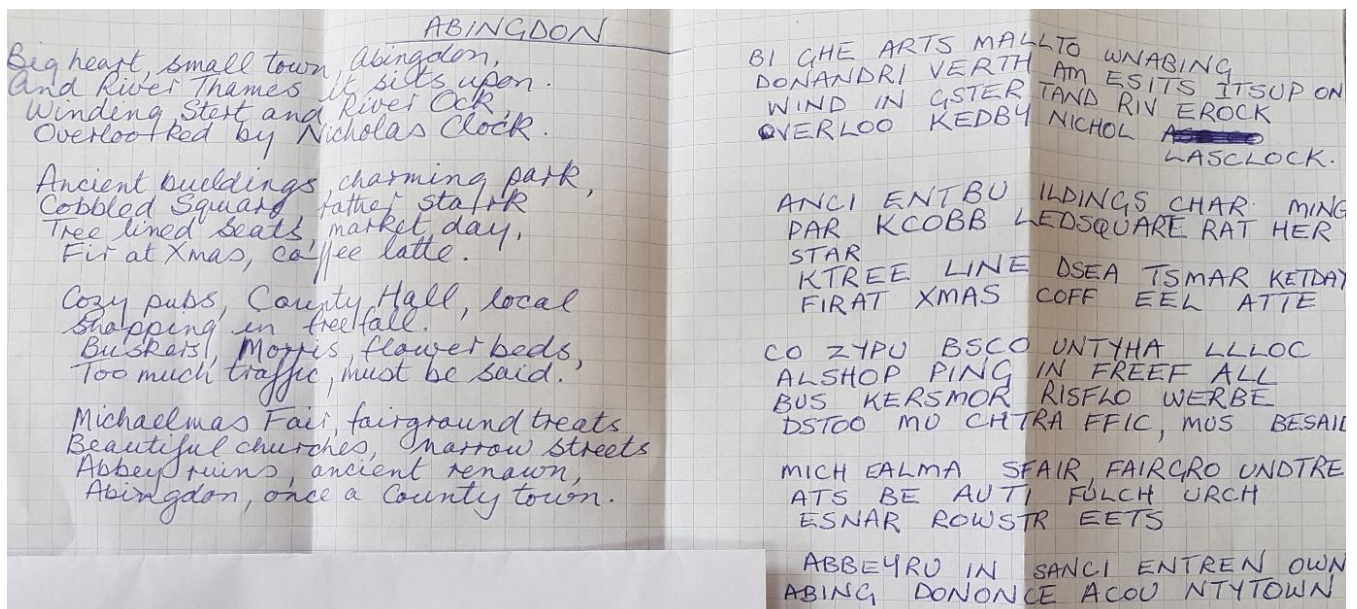 ABINGDON
Big heart, small town, Abingdon,
And River Thames it sits upon.
Winding Stert and River Ock,
Overlooked by Nicholas Clock.
Ancient buildings, charming park,
Cobbled Square, rather stark
Tree lined seats, market day,
Fir at Xmas, coffee latte.
Cozy pubs, County Hall, local
shopping in freefall.
Buskers, Morris, flower beds,
Too much traffic, must be said.
Michaelmas Fair, fairground treats
Beautiful churches, narrow streets
Abbey ruins, ancient renown,
Abingdon, once a County town.
BI GHE ARTS MALLTO WNABING
DONANDRI VERTH AM ESITS ITSUP ON
WIND IN GSTER TAND RIV EROCK
OVERLOO KEDBY NICHOL
LASCLOCK.
ANCI ENTBU ILDINGS CHAR MING
PAR KCOBB LEDSQUARE RAT HER
STAR
KTREE LINE DSEA TSMAR KETDAY
FIRAT XMAS COFF EEL ATTE
CO ZYPU BSCO UNTYHA LLLOC
ALSHOP PING IN FREEF ALL
BUS KERSMOR RISFLO WERBE
DSTOO MU CHTRA FFIC, MUS BESAID
MICH EALMA SFAIR, FAIRGRO UNDTRE
ATS BE AUTI FULCH URCH
ESNAR ROWSTR EETS
ABBEYRU IN SANCI ENTREN OWN
ABING DONONCE ACOU NTYTOWN